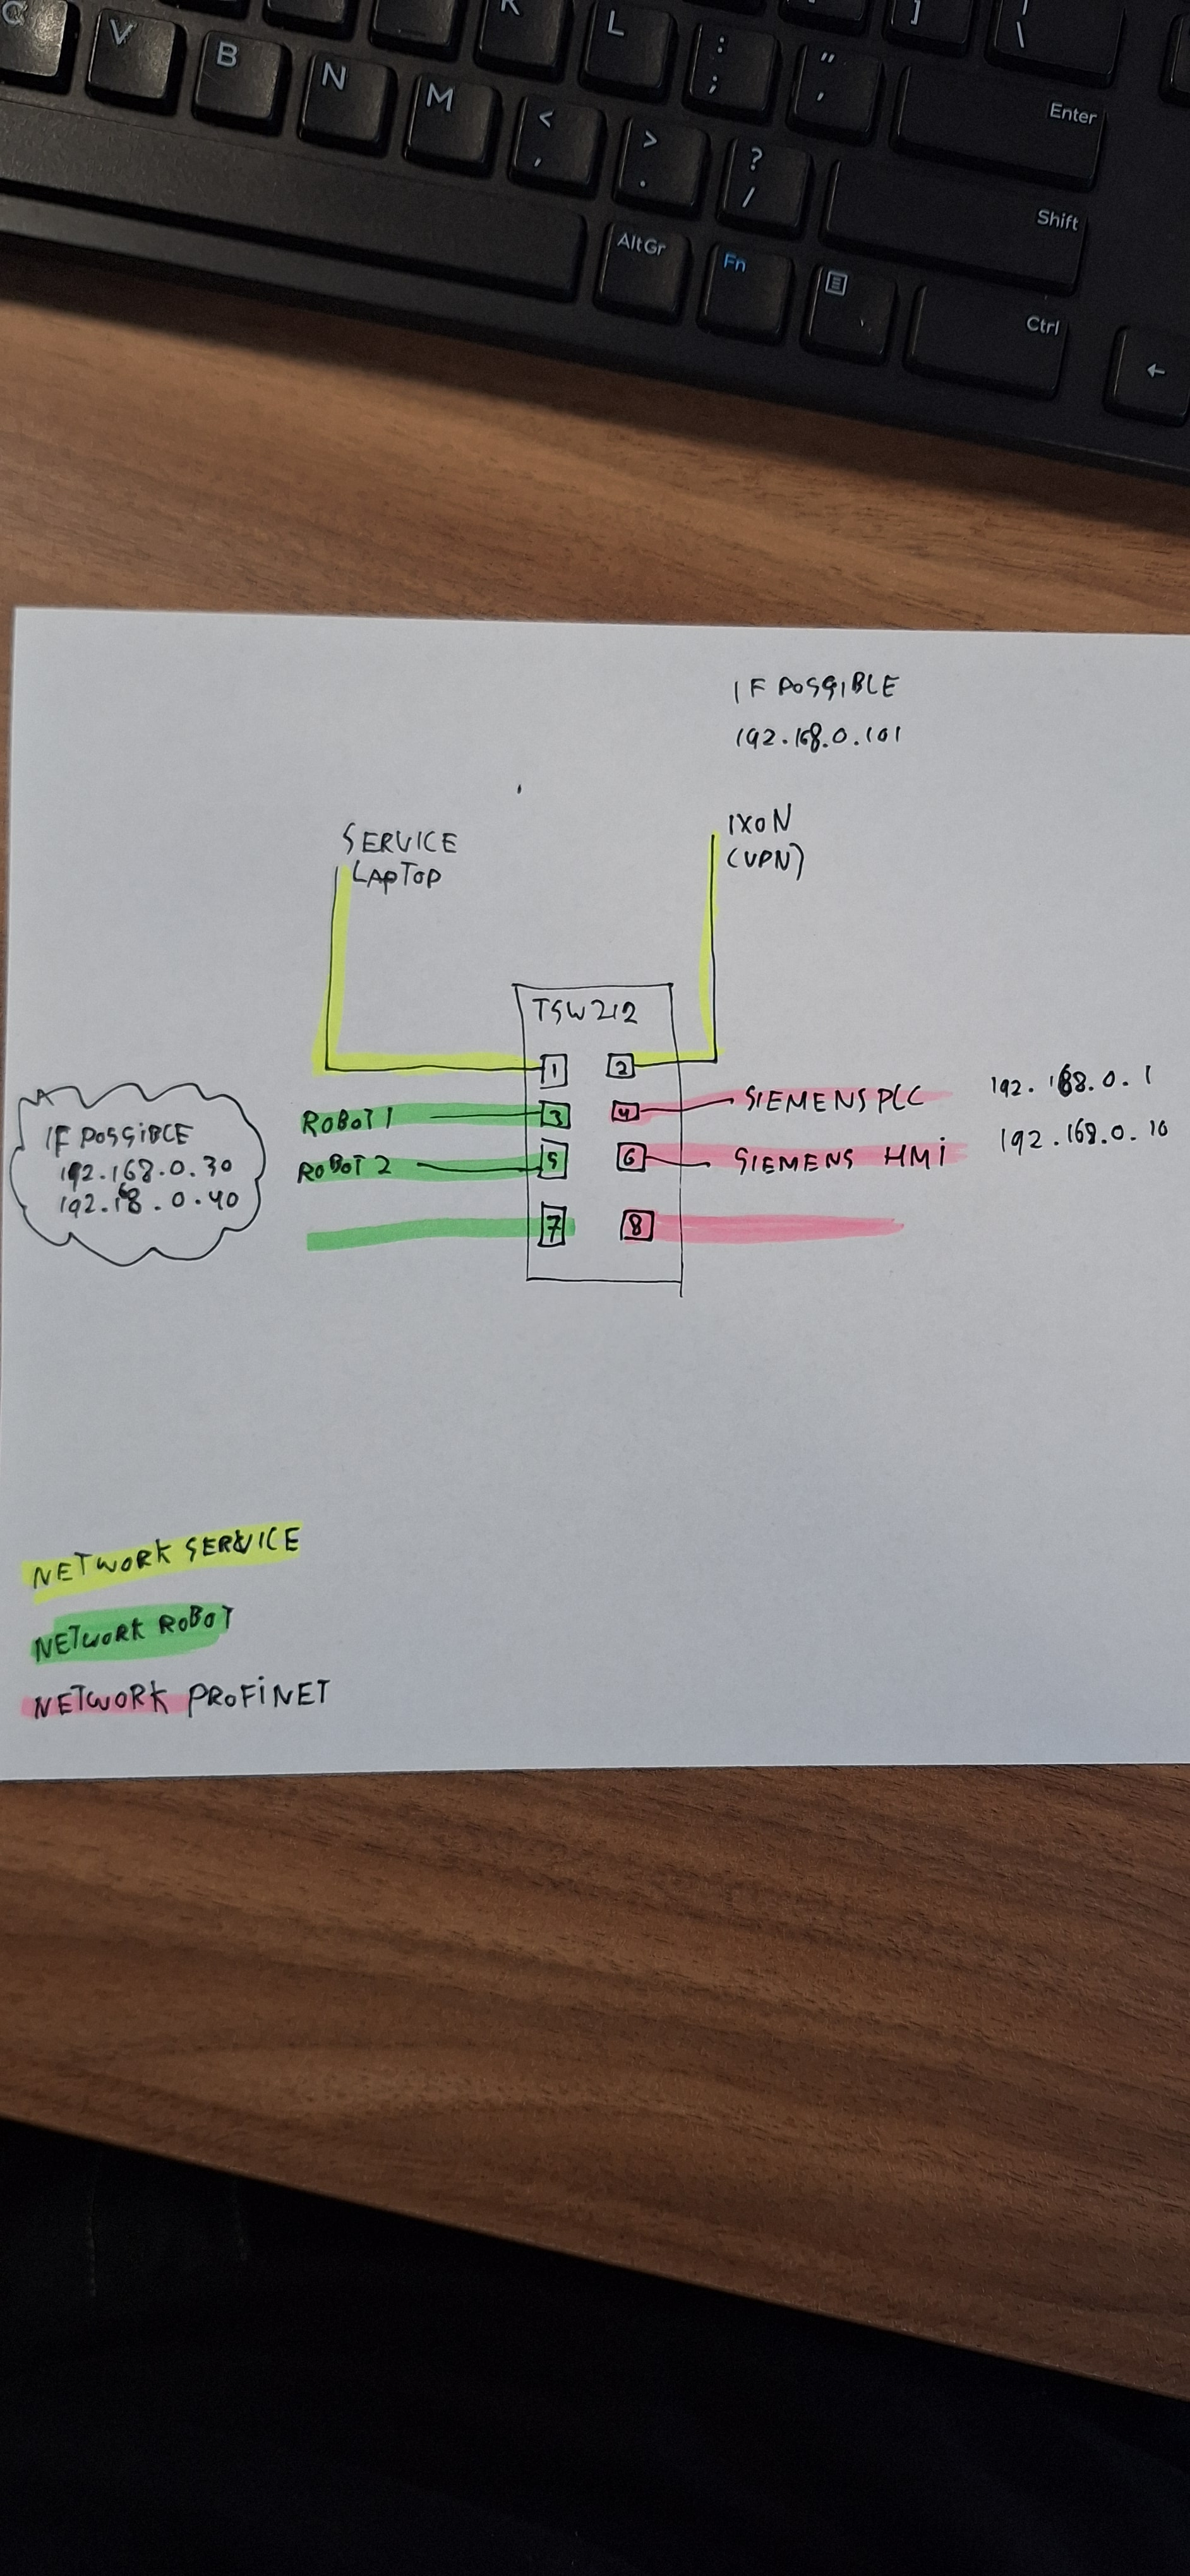 C
V
B
N
M
K
L
:
;
"
,
]
\
<
,
>
.
?
/
Enter
Shift
AltGr
Fn
Ctrl
←
IF POSSIBLE
192.168.0.101
SERVICE
LAPTOP
IXON
(VPN)
TSW212
1 2
ROBOT 1 3 4 SIEMENS PLC 192.168.0.1
ROBOT 2 5 6 SIEMENS HMI 192.168.0.10
7 8
IF POSSIBLE
192.168.0.30
192.18.0.40
NETWORK SERVICE
NETWORK ROBOT
NETWORK PROFINET